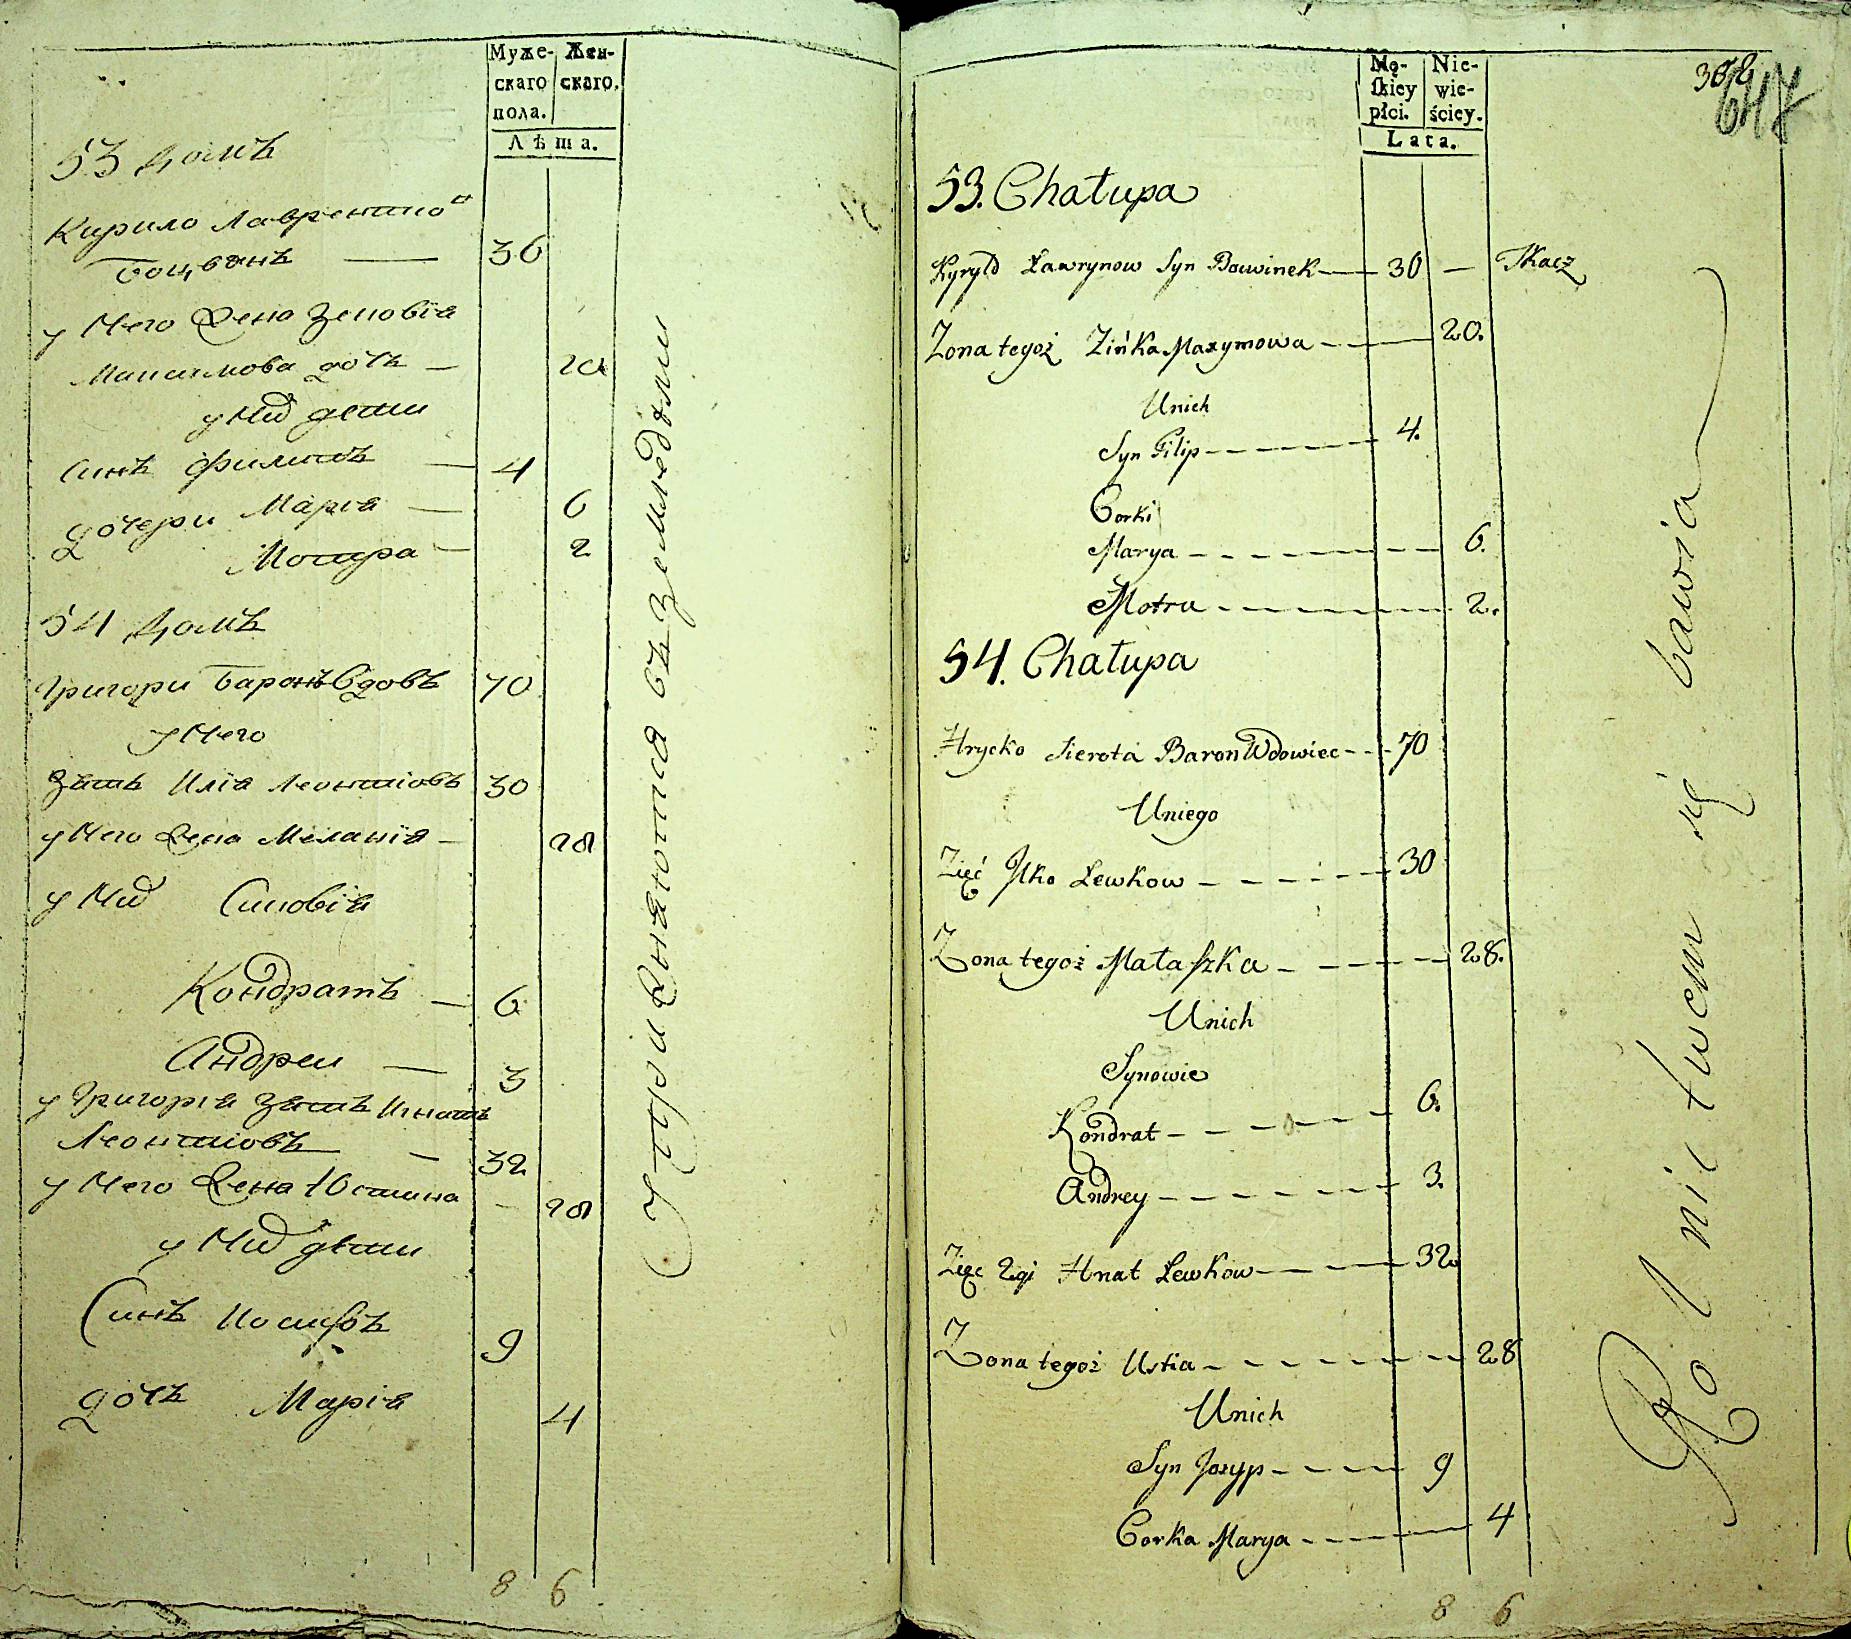 Муже- Жен-
скаго скаго.
пола.
Лѣта.
53 домъ
Кирило Лавренти но
Боцванъ — 36
у Него Жена Зеновїа
Максимова дочь — 20
у Них дети
Синъ Филипъ — 4
дочери Марїя — 6
Мотра — 2
54 домъ
Григори Баронъ Вдовъ 70
у Него
Зять Илїа Леонтїовъ 30
у Него Жена Меланїя — 28
у Них Синовїя
Кондратъ — 6
Андреи — 3
у Григорїя Зять Игнатъ
Леонтїовъ — 32
у Него Жена Юстина — 28
у Них дети
Синъ Иосифъ 9
дочь Марїя 4
8 6
Упражняются въ Земледѣлии
Mę- Nie-
skiey wie-
płci. ściey.
Lata.
302
647
53. Chałupa
Kyryło Ławrynow Syn Bouwinek — 30 — Tkacz
Zona tegoż Zińka Maxymowa — 20.
Unich
Syn Filip — 4.
Corki
Marya — 6.
Motra — 2.
54. Chałupa
Hrycko Sierota Baron Wdowiec — 70
Uniego
Zięć Ilko Lewkow — 30
Zona tegoż Małaszka — 28.
Unich
Synowie
Kondrat — 6.
Andrey — 3.
Zięc 2gi Hnat Lewkow — 32
Zona tegoż Ustia — 28
Unich
Syn Jozyp — 9
Corka Marya — 4
8 6
Rolnictwem się bawia